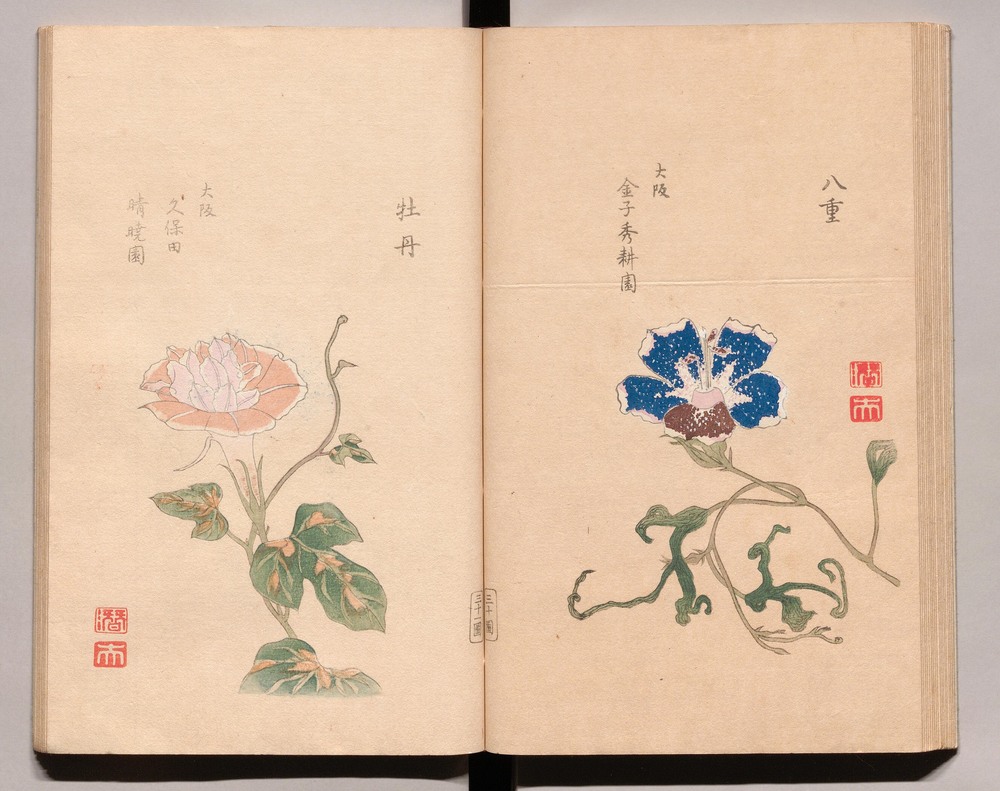 八重
大阪
金子秀耕園
三十圖
三十一圖
牡丹
大阪
久保田
晴曉園